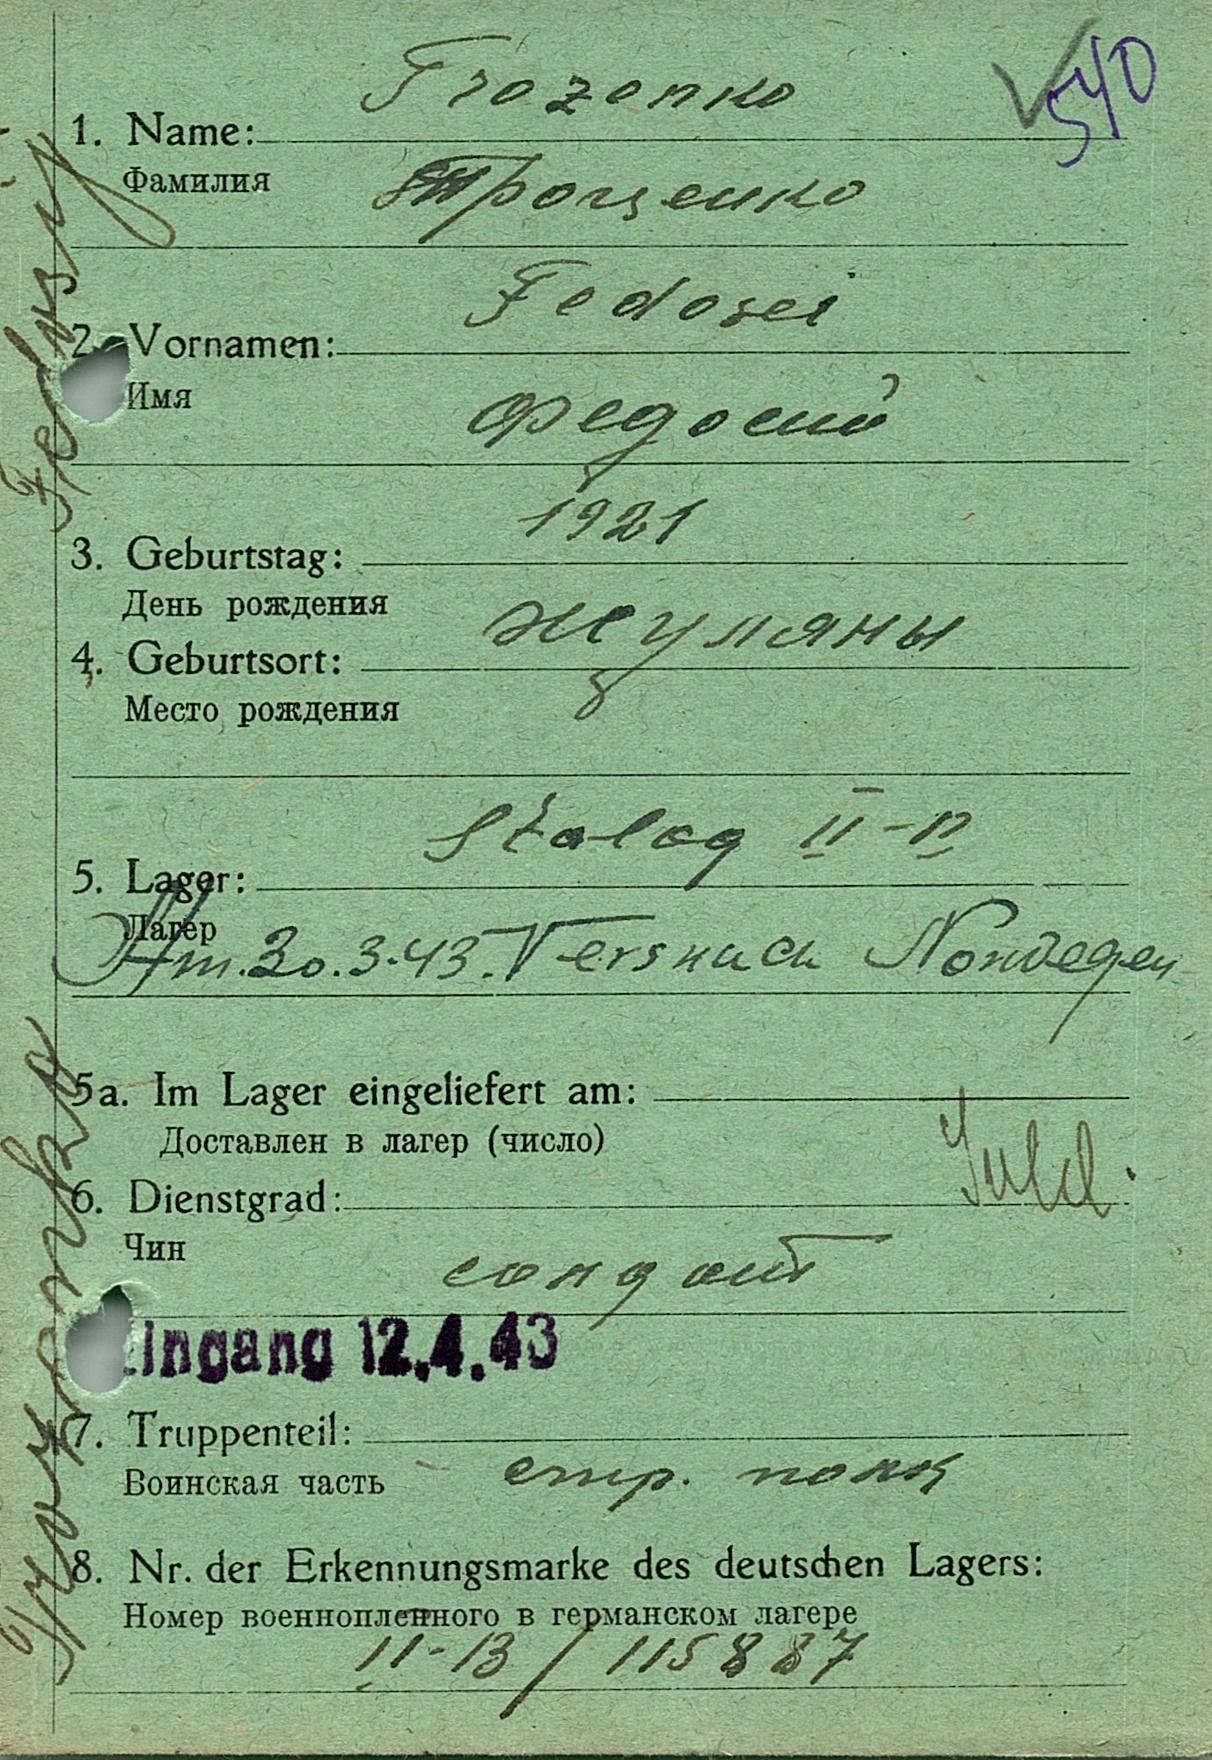 540
Trozenko
1. Name:
Фамилия
Троценко
Fedosei
2. Vornamen:
Имя
Федосий
1921
3. Geburtstag:
День рождения
Жуляны
4. Geburtsort:
Место рождения
Stalag II-B
5. Lager:
Лагер
Am. 30.3.43. Versuch Norwegen
5a. Im Lager eingeliefert am:
Доставлен в лагер (число)
Sold.
6. Dienstgrad:
Чин
солдат
Eingang 12.4.43
7. Truppenteil:
Воинская часть
стр. полк
8. Nr. der Erkennungsmarke des deutschen Lagers:
Номер военнопленного в германском лагере
II-B / 115887